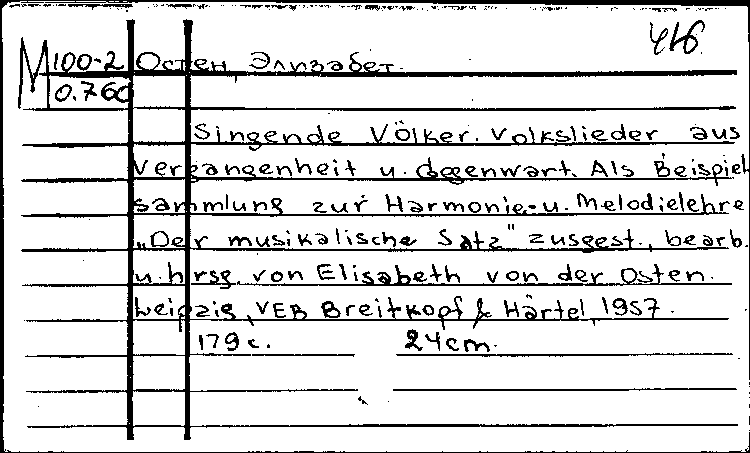 416
М 100-2 Остен, Элизабет.
0.760
Singende Völker. Volkslieder aus
Vergangenheit u. Gegenwart. Als Beispiel
sammlung zur Harmonie- u. Melodielehre
„Der musikalische Satz" zusgest., bearb.
u. hrsg. von Elisabeth von der Osten.
Leipzig, VEB Breitkopf & Härtel, 1957.
179 с. 24cm.